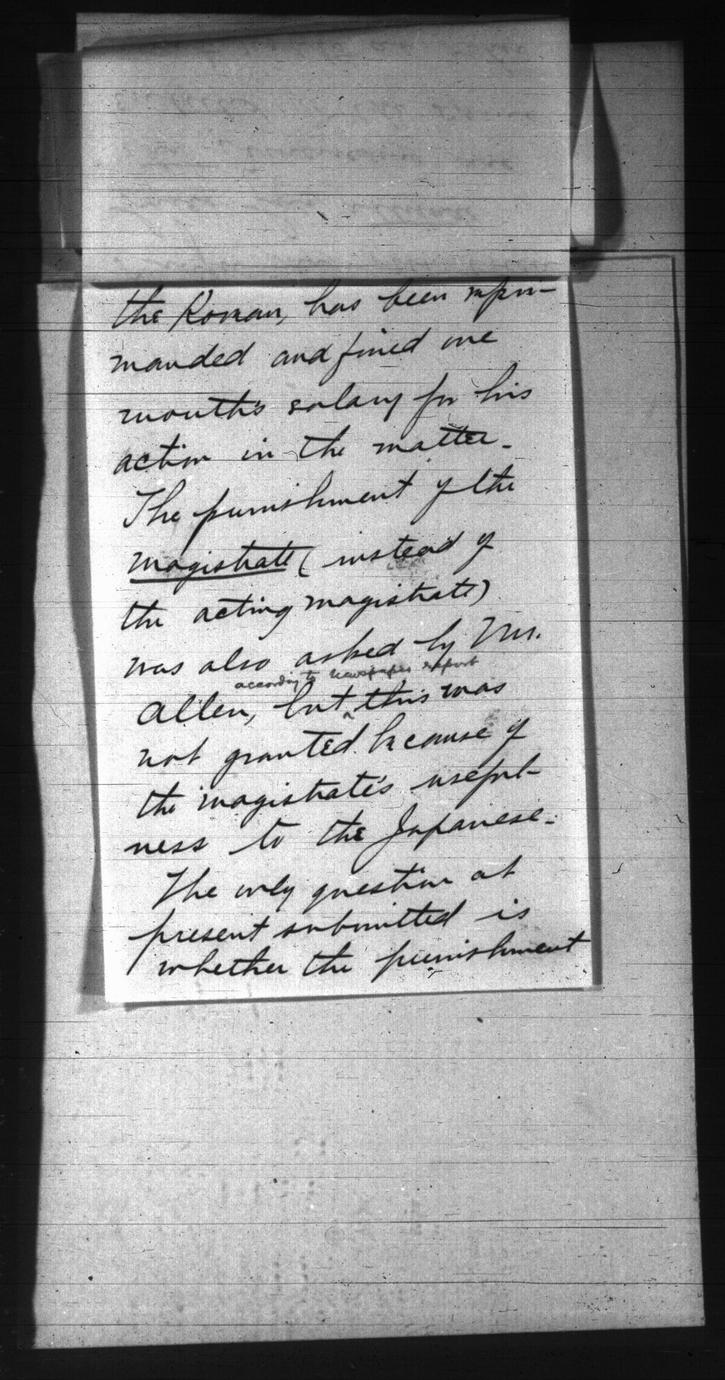 the Korean, has been repri-
manded and fined one
month's salary for his
action in the matter.
The punishment of the
magistrate (instead of
the acting magistrate)
was also asked by Mr.
according to newspaper report
Allen, but ^ this was
not granted because of
the magistrate's useful-
ness to the Japanese.
The only question at
present submitted is
whether the punishment